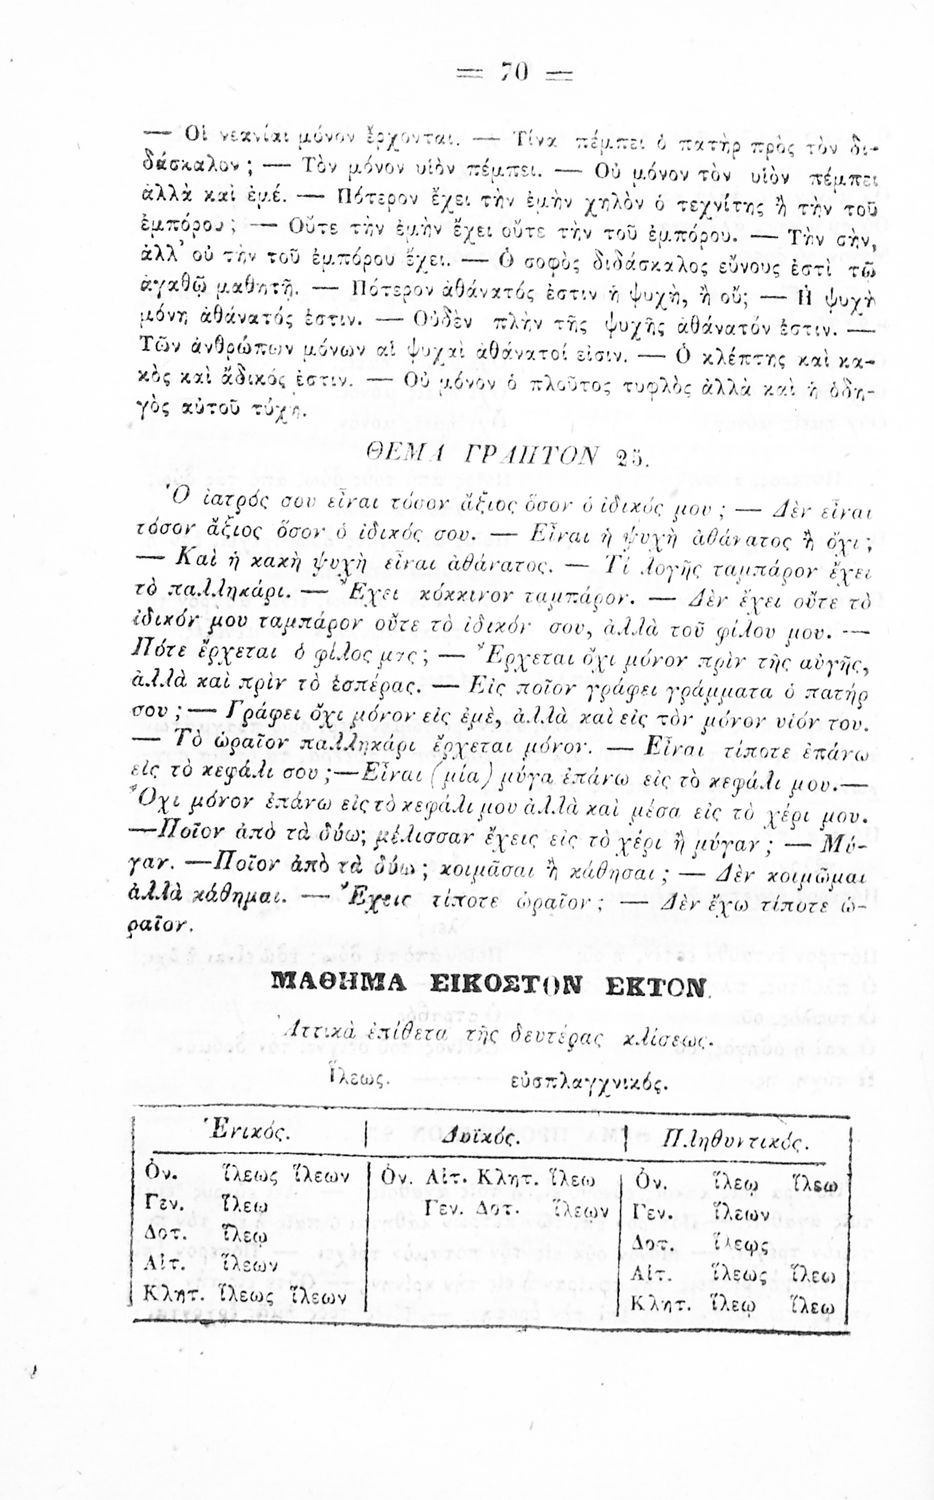 = 70 =
— Οἱ νεανίαι μόνον ἔρχονται. — Τίνα πέμπει ὁ πατὴρ πρὸς τὸν δι-
δάσκαλον; — Τὸν μόνον υἱὸν πέμπει. — Οὐ μόνον τὸν υἱὸν πέμπει
ἀλλὰ καὶ ἐμέ. — Πότερον ἔχει τὴν ἐμὴν χηλὸν ὁ τεχνίτης ἢ τὴν τοῦ
ἐμπόρου; — Οὔτε τὴν ἐμὴν ἔχει οὔτε τὴν τοῦ ἐμπόρου. — Τὴν σὴν,
ἀλλ' οὐ τὴν τοῦ ἐμπόρου ἔχει. — Ὁ σοφὸς διδάσκαλος εὔνους ἐστὶ τῷ
ἀγαθῷ μαθητῇ. — Πότερον ἀθάνατός ἐστιν ἡ ψυχὴ, ἢ οὔ; — Ἡ ψυχὴ
μόνη ἀθάνατός ἐστιν. — Οὐδὲν πλὴν τῆς ψυχῆς ἀθάνατόν ἐστιν. —
Τῶν ἀνθρώπων μόνων αἱ ψυχαὶ ἀθάνατοί εἰσιν. — Ὁ κλέπτης καὶ κα-
κὸς καὶ ἄδικός ἐστιν. — Οὐ μόνον ὁ πλοῦτος τυφλὸς ἀλλὰ καὶ ἡ ὁδη-
γὸς αὐτοῦ τύχη.
ΘΕΜΑ ΓΡΑΠΤΟΝ 25.
Ὁ ἰατρός σου εἶναι τόσον ἄξιος ὅσον ὁ ἰδικός μου; — Δὲν εἶναι
τόσον ἄξιος ὅσον ὁ ἰδικός σου. — Εἶναι ἡ ψυχὴ ἀθάνατος ἢ ὄχι;
— Καὶ ἡ κακὴ ψυχὴ εἶναι ἀθάνατος. — Τί λογῆς ταμπάρον ἔχει
τὸ παλληκάρι. — Ἔχει κόκκινον ταμπάρον. — Δὲν ἔχει οὔτε τὸ
ἰδικόν μου ταμπάρον οὔτε τὸ ἰδικόν σου, ἀλλὰ τοῦ φίλου μου. —
Πότε ἔρχεται ὁ φίλος μας; — Ἔρχεται ὄχι μόνον πρὶν τῆς αὐγῆς,
ἀλλὰ καὶ πρὶν τὸ ἑσπέρας. — Εἰς ποῖον γράφει γράμματα ὁ πατήρ
σου; — Γράφει ὄχι μόνον εἰς ἐμὲ, ἀλλὰ καὶ εἰς τὸν μόνον υἱόν του.
— Τὸ ὡραῖον παλληκάρι ἔρχεται μόνον. — Εἶναι τίποτε ἐπάνω
εἰς τὸ κεφάλι σου; — Εἶναι (μία) μύγα ἐπάνω εἰς τὸ κεφάλι μου. —
Ὄχι μόνον ἐπάνω εἰς τὸ κεφάλι μου ἀλλὰ καὶ μέσα εἰς τὸ χέρι μου.
— Ποῖον ἀπὸ τὰ δύω; μέλισσαν ἔχεις εἰς τὸ χέρι ἢ μύγαν; — Μύ-
γαν. — Ποῖον ἀπὸ τὰ δύω; κοιμᾶσαι ἢ κάθησαι; — Δὲν κοιμῶμαι
ἀλλὰ κάθημαι. — Ἔχεις τίποτε ὡραῖον; — Δὲν ἔχω τίποτε ὡ-
ραῖον.
ΜΑΘΗΜΑ ΕΙΚΟΣΤΟΝ ΕΚΤΟΝ.
Ἀττικὰ ἐπίθετα τῆς δευτέρας κλίσεως.
Ἵλεως. εὐσπλαγχνικός.
Ἑνικός. Δυϊκός. Πληθυντικός.
Ὀν. ἵλεως ἵλεων Ὀν. Αἰτ. Κλητ. ἵλεω Ὀν. ἵλεῳ ἵλεω
Γεν. ἵλεω Γεν. Δοτ. ἵλεων Γεν. ἵλεων
Δοτ. ἵλεῳ Δοτ. ἵλεῳς
Αἰτ. ἵλεων Αἰτ. ἵλεως ἵλεω
Κλητ. ἵλεως ἵλεων Κλητ. ἵλεῳ ἵλεω